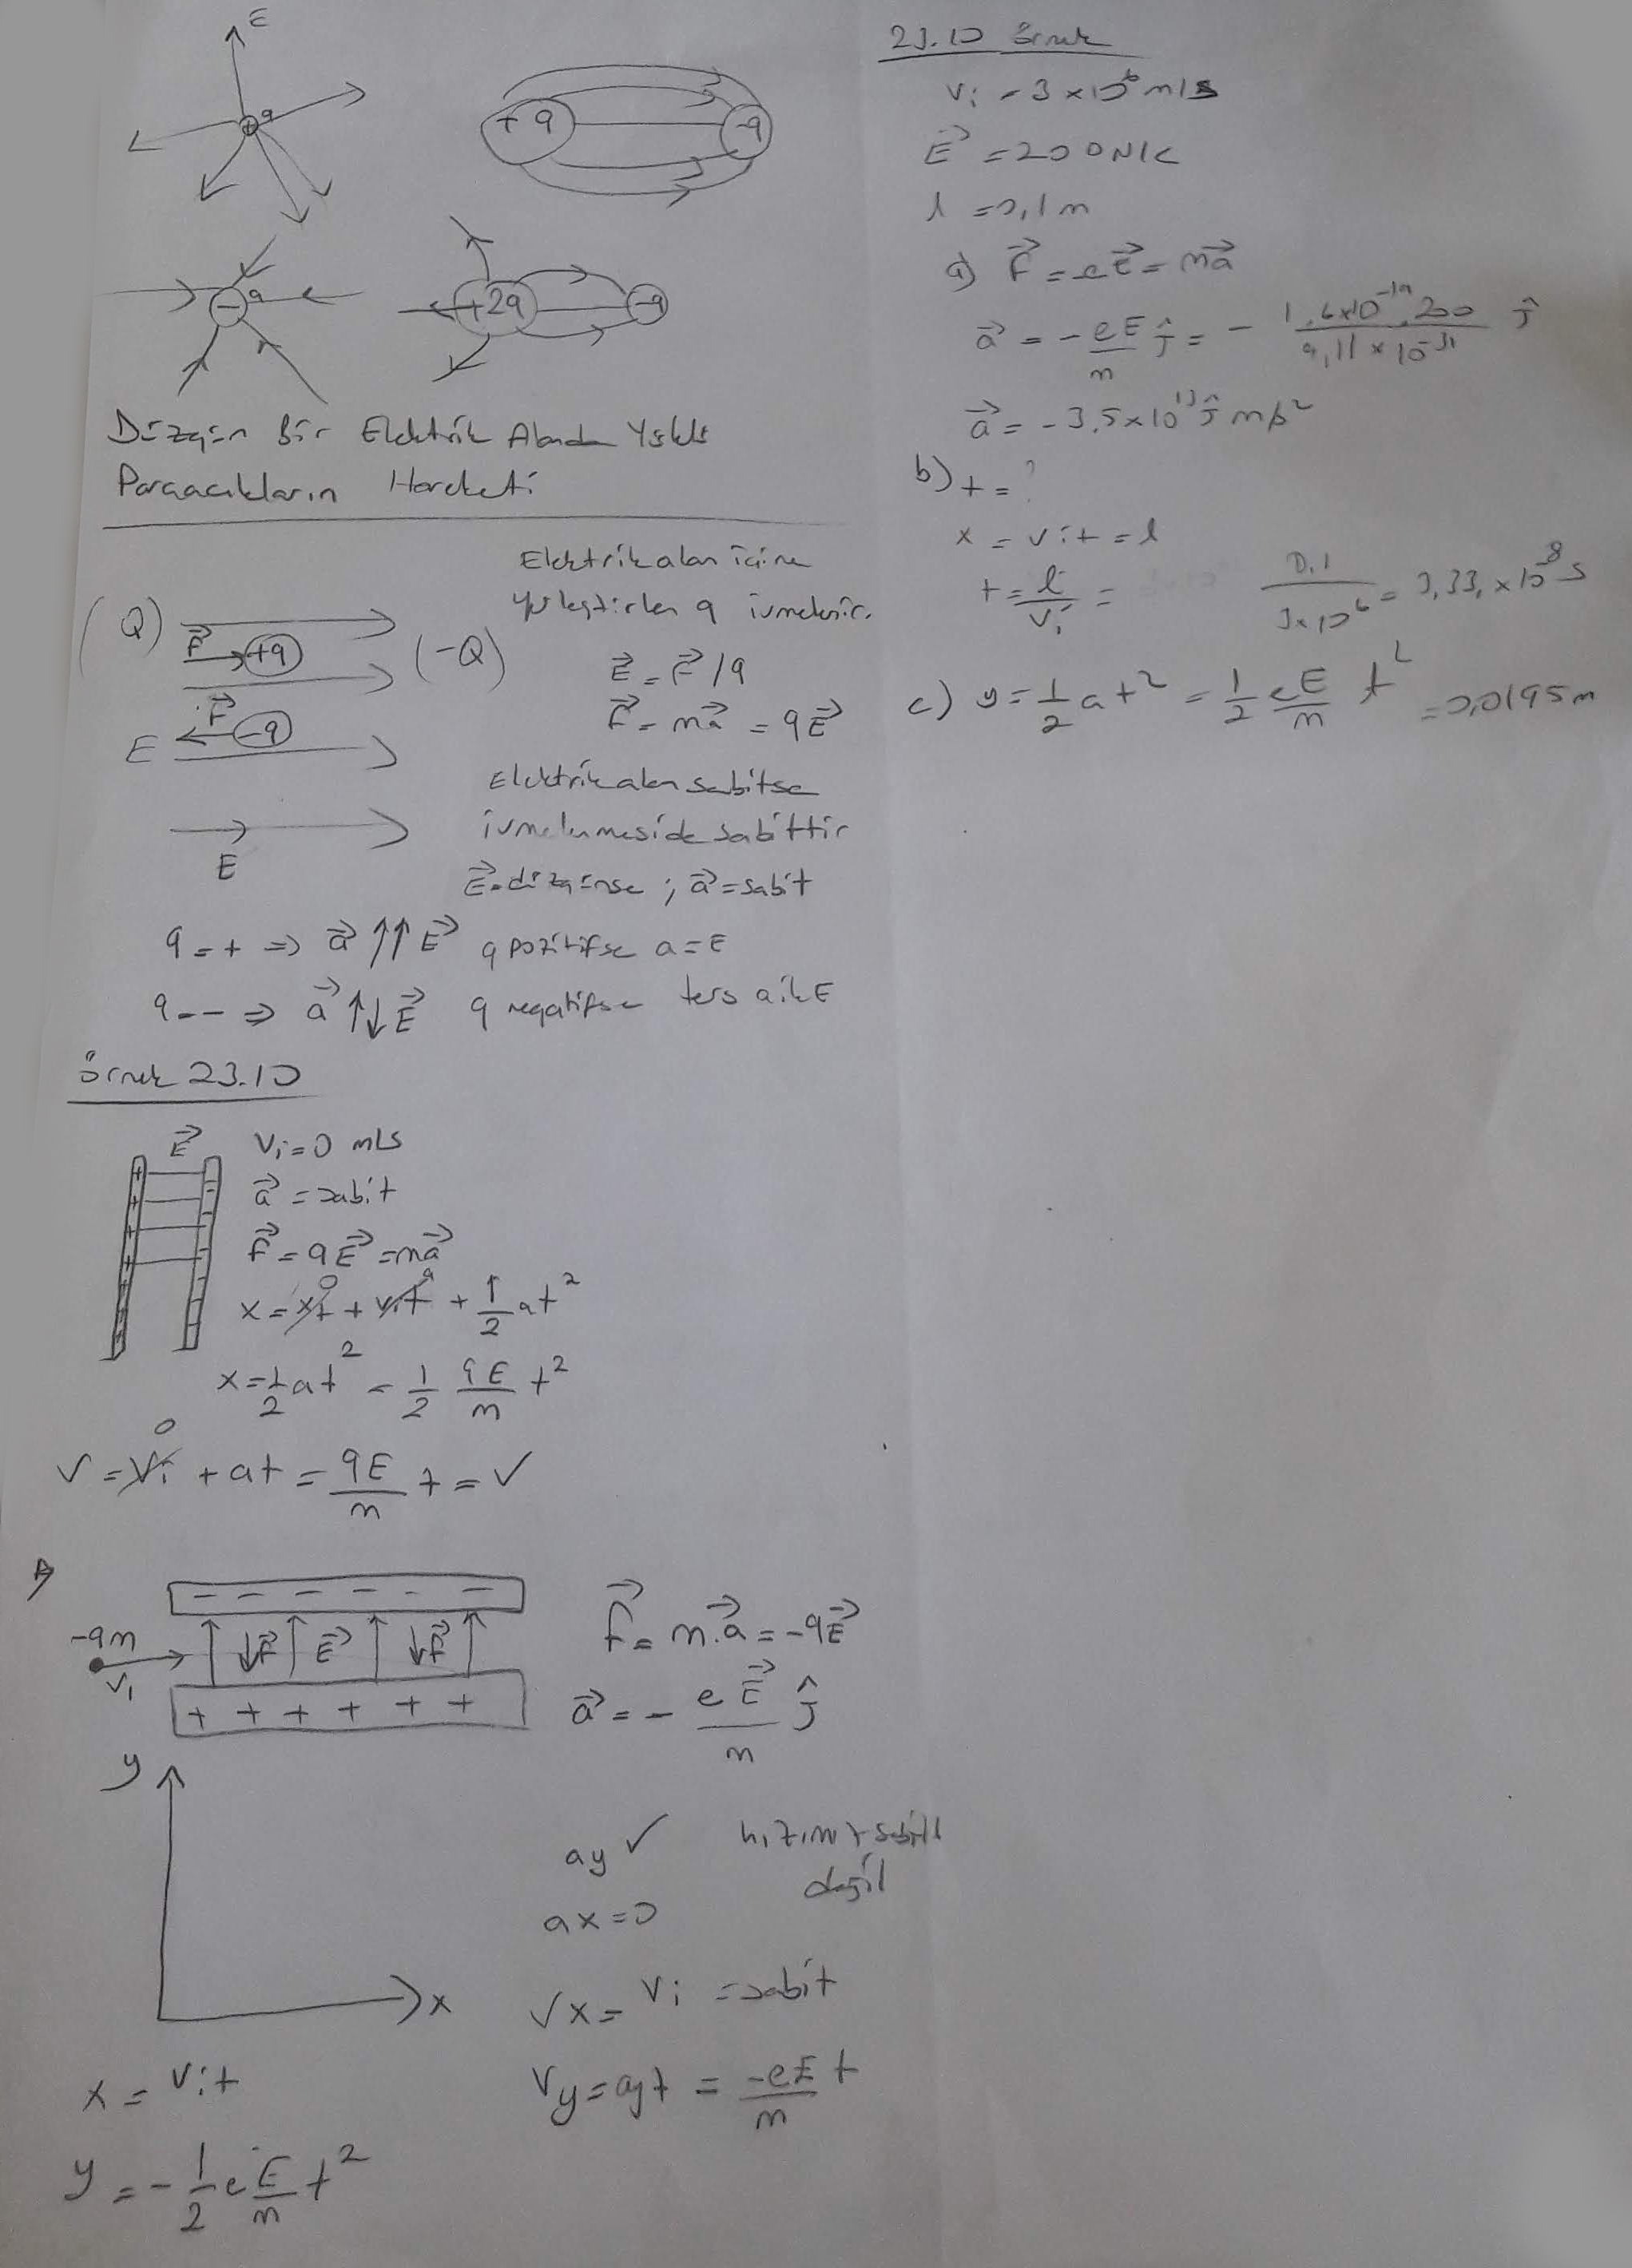 E
+q
+q
-q
-q
+2q
-q
Düzgün Bir Elektrik Alanda Yüklü
Parçacıkların Hareketi
Elektrik alan içine
yerleştirilen q ivmelenir.
(Q) F⃗ +q (-Q)
E⃗ = F⃗/q
F⃗ -q
F⃗ = ma⃗ = qE⃗
E
Elektrik alan sabitse
ivmelenmeside sabittir
E
E⃗ düzgünse ; a⃗ = sabit
q = + ⇒ a⃗ ↑↑ E⃗ q pozitifse a = E
q = - ⇒ a⃗ ↑↓ E⃗ q negatifse ters a ile E
Örnek 23.10
E⃗ Vi = 0 m/s
a⃗ = sabit
F⃗ = qE⃗ = ma⃗
x = xi + vit + 1/2 at²
x = 1/2 at² = 1/2 qE/m t²
v = vi + at = qE/m t = v
- - - - - -
-q m F⃗ E⃗ F⃗
Vi
+ + + + + +
F⃗ = m.a⃗ = -qE⃗
a⃗ = - eE⃗/m ĵ
y
ay ✓ sabit
değil
ax = 0
x
vx = vi = sabit
x = vit
vy = ayt = -eE/m t
y = - 1/2 e E/m t²
23.10 Örnek
vi = 3 x 10⁶ m/s
E⃗ = 200 N/C
l = 0,1 m
a) F⃗ = eE⃗ = ma⃗
a⃗ = - eE/m ĵ = - 1,6x10⁻¹⁹.200 / 9,11 x 10⁻³¹ ĵ
a⃗ = - 3,5 x 10¹³ ĵ m/s²
b) t = ?
x = vit = l
t = l/vi = 0.1 / 3x10⁶ = 3,33 x 10⁻⁸ s
c) y = 1/2 at² = 1/2 eE/m t² = 0,0195 m